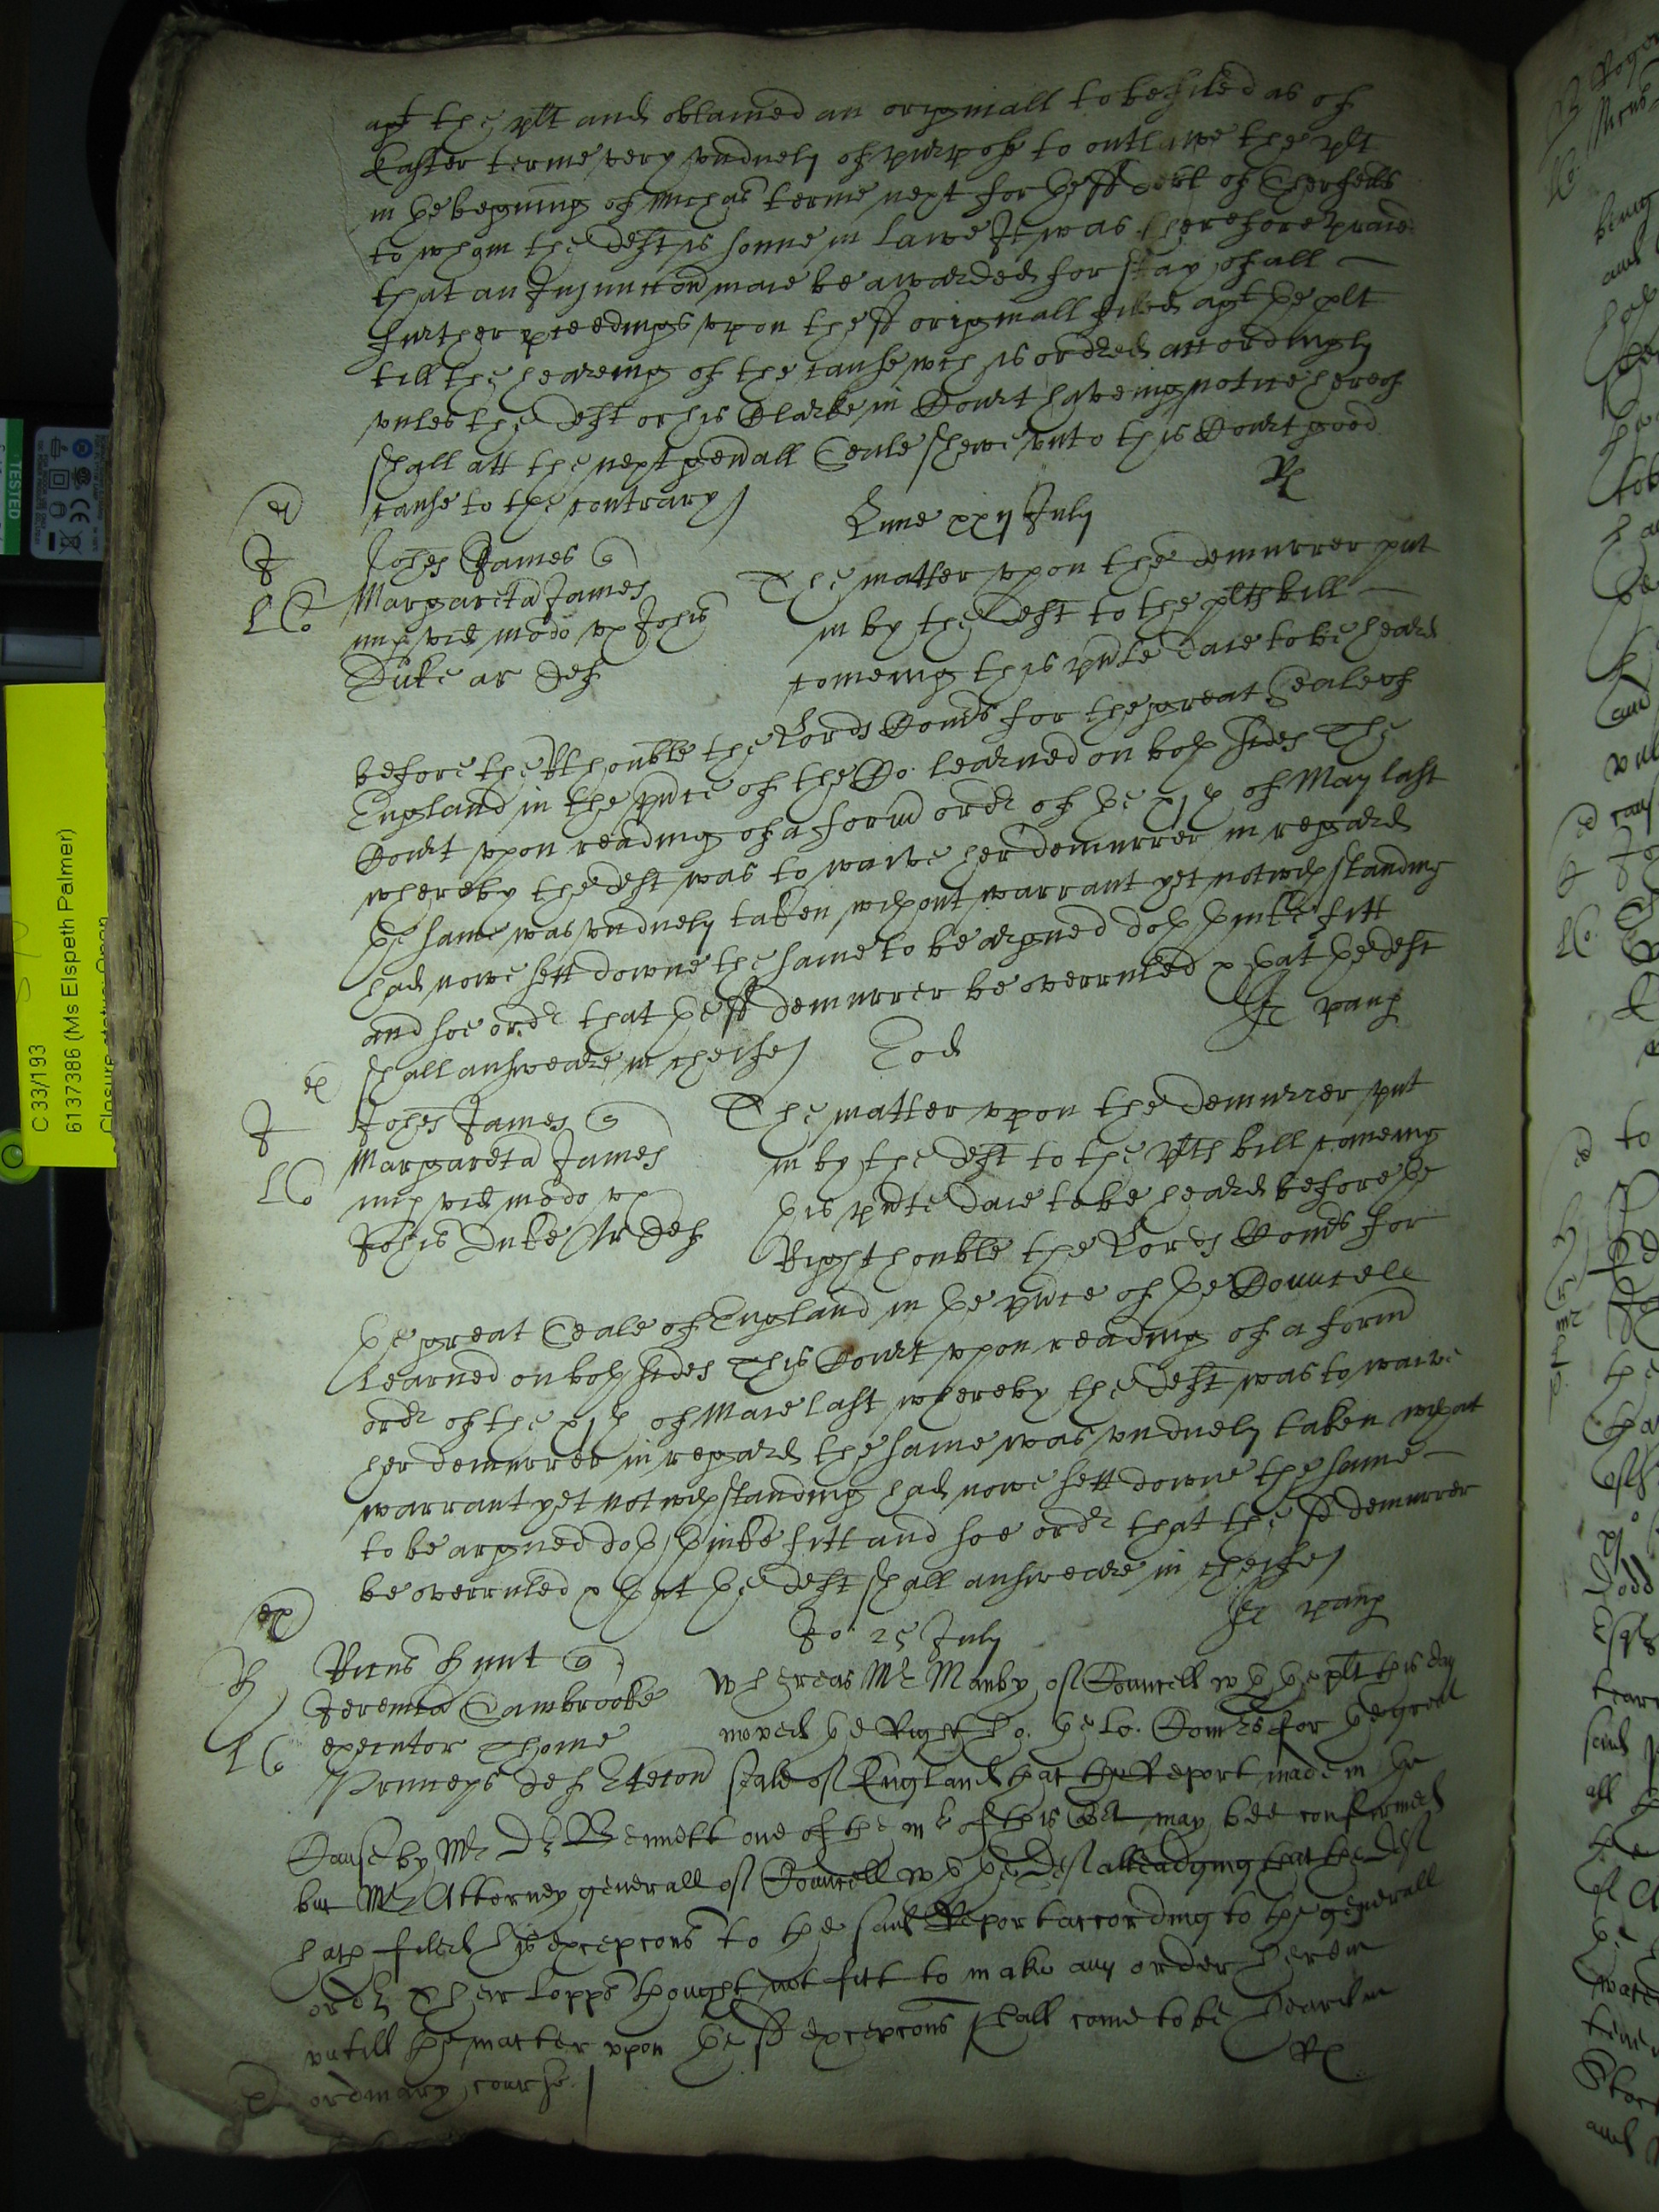 agt the plt and obtained an originall to be filed as of
Easter terme very unduely of purpose to outlawe the plt
in the begining of Michas terme next for the sd debt of
to whom the deft is sonne in lawe It was therefore praied
that an Iniunccon maie be awarded for stay of all
further pceedings upon the sd originall filed agt the plt
till the heareing of the cause wch is ordred accordingly
unles the deft or his Clarke in Court haveing notice hereof
shall att the next genall Seale shewe unto this Court good
cause to the contrary
Rp
Lune xxij July
Johes James q
Margareta James
nup vid modo ux Johis
Duke ar def
The matter upon the demurrer put
in by the deft to the plts bill
comeing this pnte daie to be heard
before the Rt honble the Lords Comrs for the great Seale of
England in the pnce of the Co: learned on both sides The
Court upon reading of a form ordr of the xjth of May last
whereby the deft was to waive her demurrer in regard
the same was unduely taken wthout warrant yet notwthstanding
had nowe sett downe the same to be argued doth thinke fitt
and soe ordr that the sd demurrer be overruled & that the deft
shall answeare in cheife
Eod
Johes James q
Margareta James
nup vid modo ux
Johis Duke Ar def
The matter upon the demurrer put
in by the deft to the plts bill comeing
this pnte daie to be heard before the
Right honble the Lords Comrs for
the great Seale of England in the pnce of the Councell
Learned on both sides This Court upon reading of a form
ordr of the xjth of Maie last whereby the deft was to waive
her demurrer in regard the same was unduely taken wthout
warrant yet notwthstanding had nowe sett downe the same
to be argued doth thinke fitt and soe ordr that the sd demurrer
be overruled & that the deft shall answeare in cheife
Jo: 25 July
Ricus Hunt q
Jeremia Sambrooke
executor Thome
def
Whereas Mr Manby of Councell wth the plt this day
moved the Right ho: the Lo: Comrs for the great
seale of England that the Report made in the
Cause by Mr Dr Bennett one of the mrs of this Cort may bee confirmed
but Mr Attorney generall of Councell wth the Deft alleadging that the Deft
hath filed his excepcons to the said Report according to the generall
ordr Their Lopps thought not fitt to make any order herein
untill the matter upon the sd excepcons shall come to be heard in
ordinary course
Rp
C 33/193
6137386 (Ms Elspeth Palmer)
TESTED